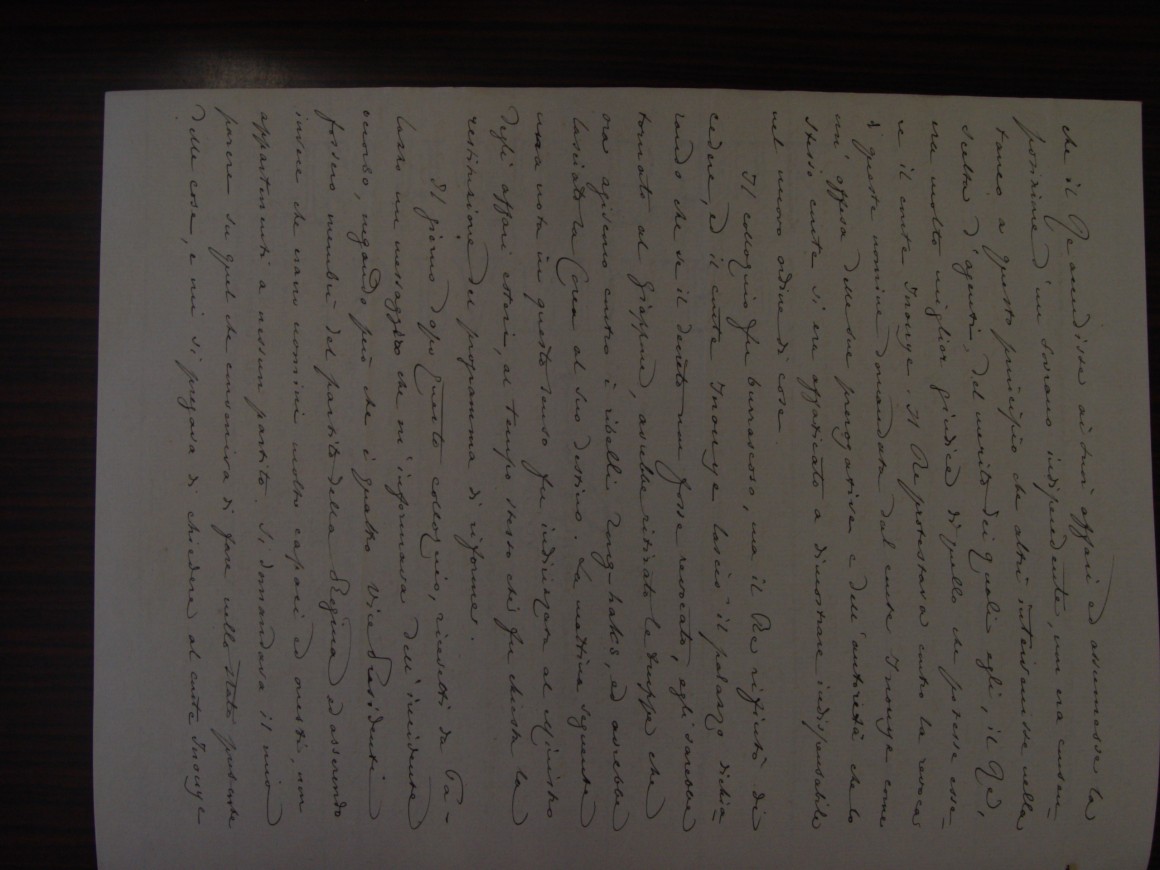 che il Re accudisse ai suoi affari ed assumesse la
posizione d'un sovrano indipendente, non era consen-
taneo a questo principio che altri interloquisse nella
scelta d'agenti, del merito dei quali egli, il Re,
era molto miglior giudice di quello che potesse esse-
re il conte Inouye. Il Re protestava contro la revoca
di queste nomine domandata dal conte Inouye come
un'offesa delle sue prerogative e dell'autorità che lo
stesso conte si era affaticato a dimostrare indispensabile
nel nuovo ordine di cose.
Il colloquio fu burrascoso, ma il Re rifiutò di
cedere, ed il conte Inouye lasciò il palazzo dichia-
rando che se il decreto non fosse revocato, egli sarebbe
tornato al Giappone, avrebbe ritirato le truppe che
ora agiscono contro i ribelli Tong-haks, ed avrebbe
lasciato la Corea al suo destino. La mattina seguente
una nota in questo senso fu indirizzata al Ministro
degli affari esteri, al tempo stesso che fu chiesta la
restituzione del programma di riforme.
Il giorno dopo questo colloquio, ricevetti da Pa-
lazzo un messaggio che m'informava dell'incidente
occorso, negando però che i quattro Vice Presidenti
fossero membri del partito della Regina ed asserendo
invece che erano uomini molto capaci ed onesti, non
appartenenti a nessun partito. Si domandava il mio
parere su quel che conveniva di fare nello stato presente
delle cose, e mi si pregava di chiedere al conte Inouye